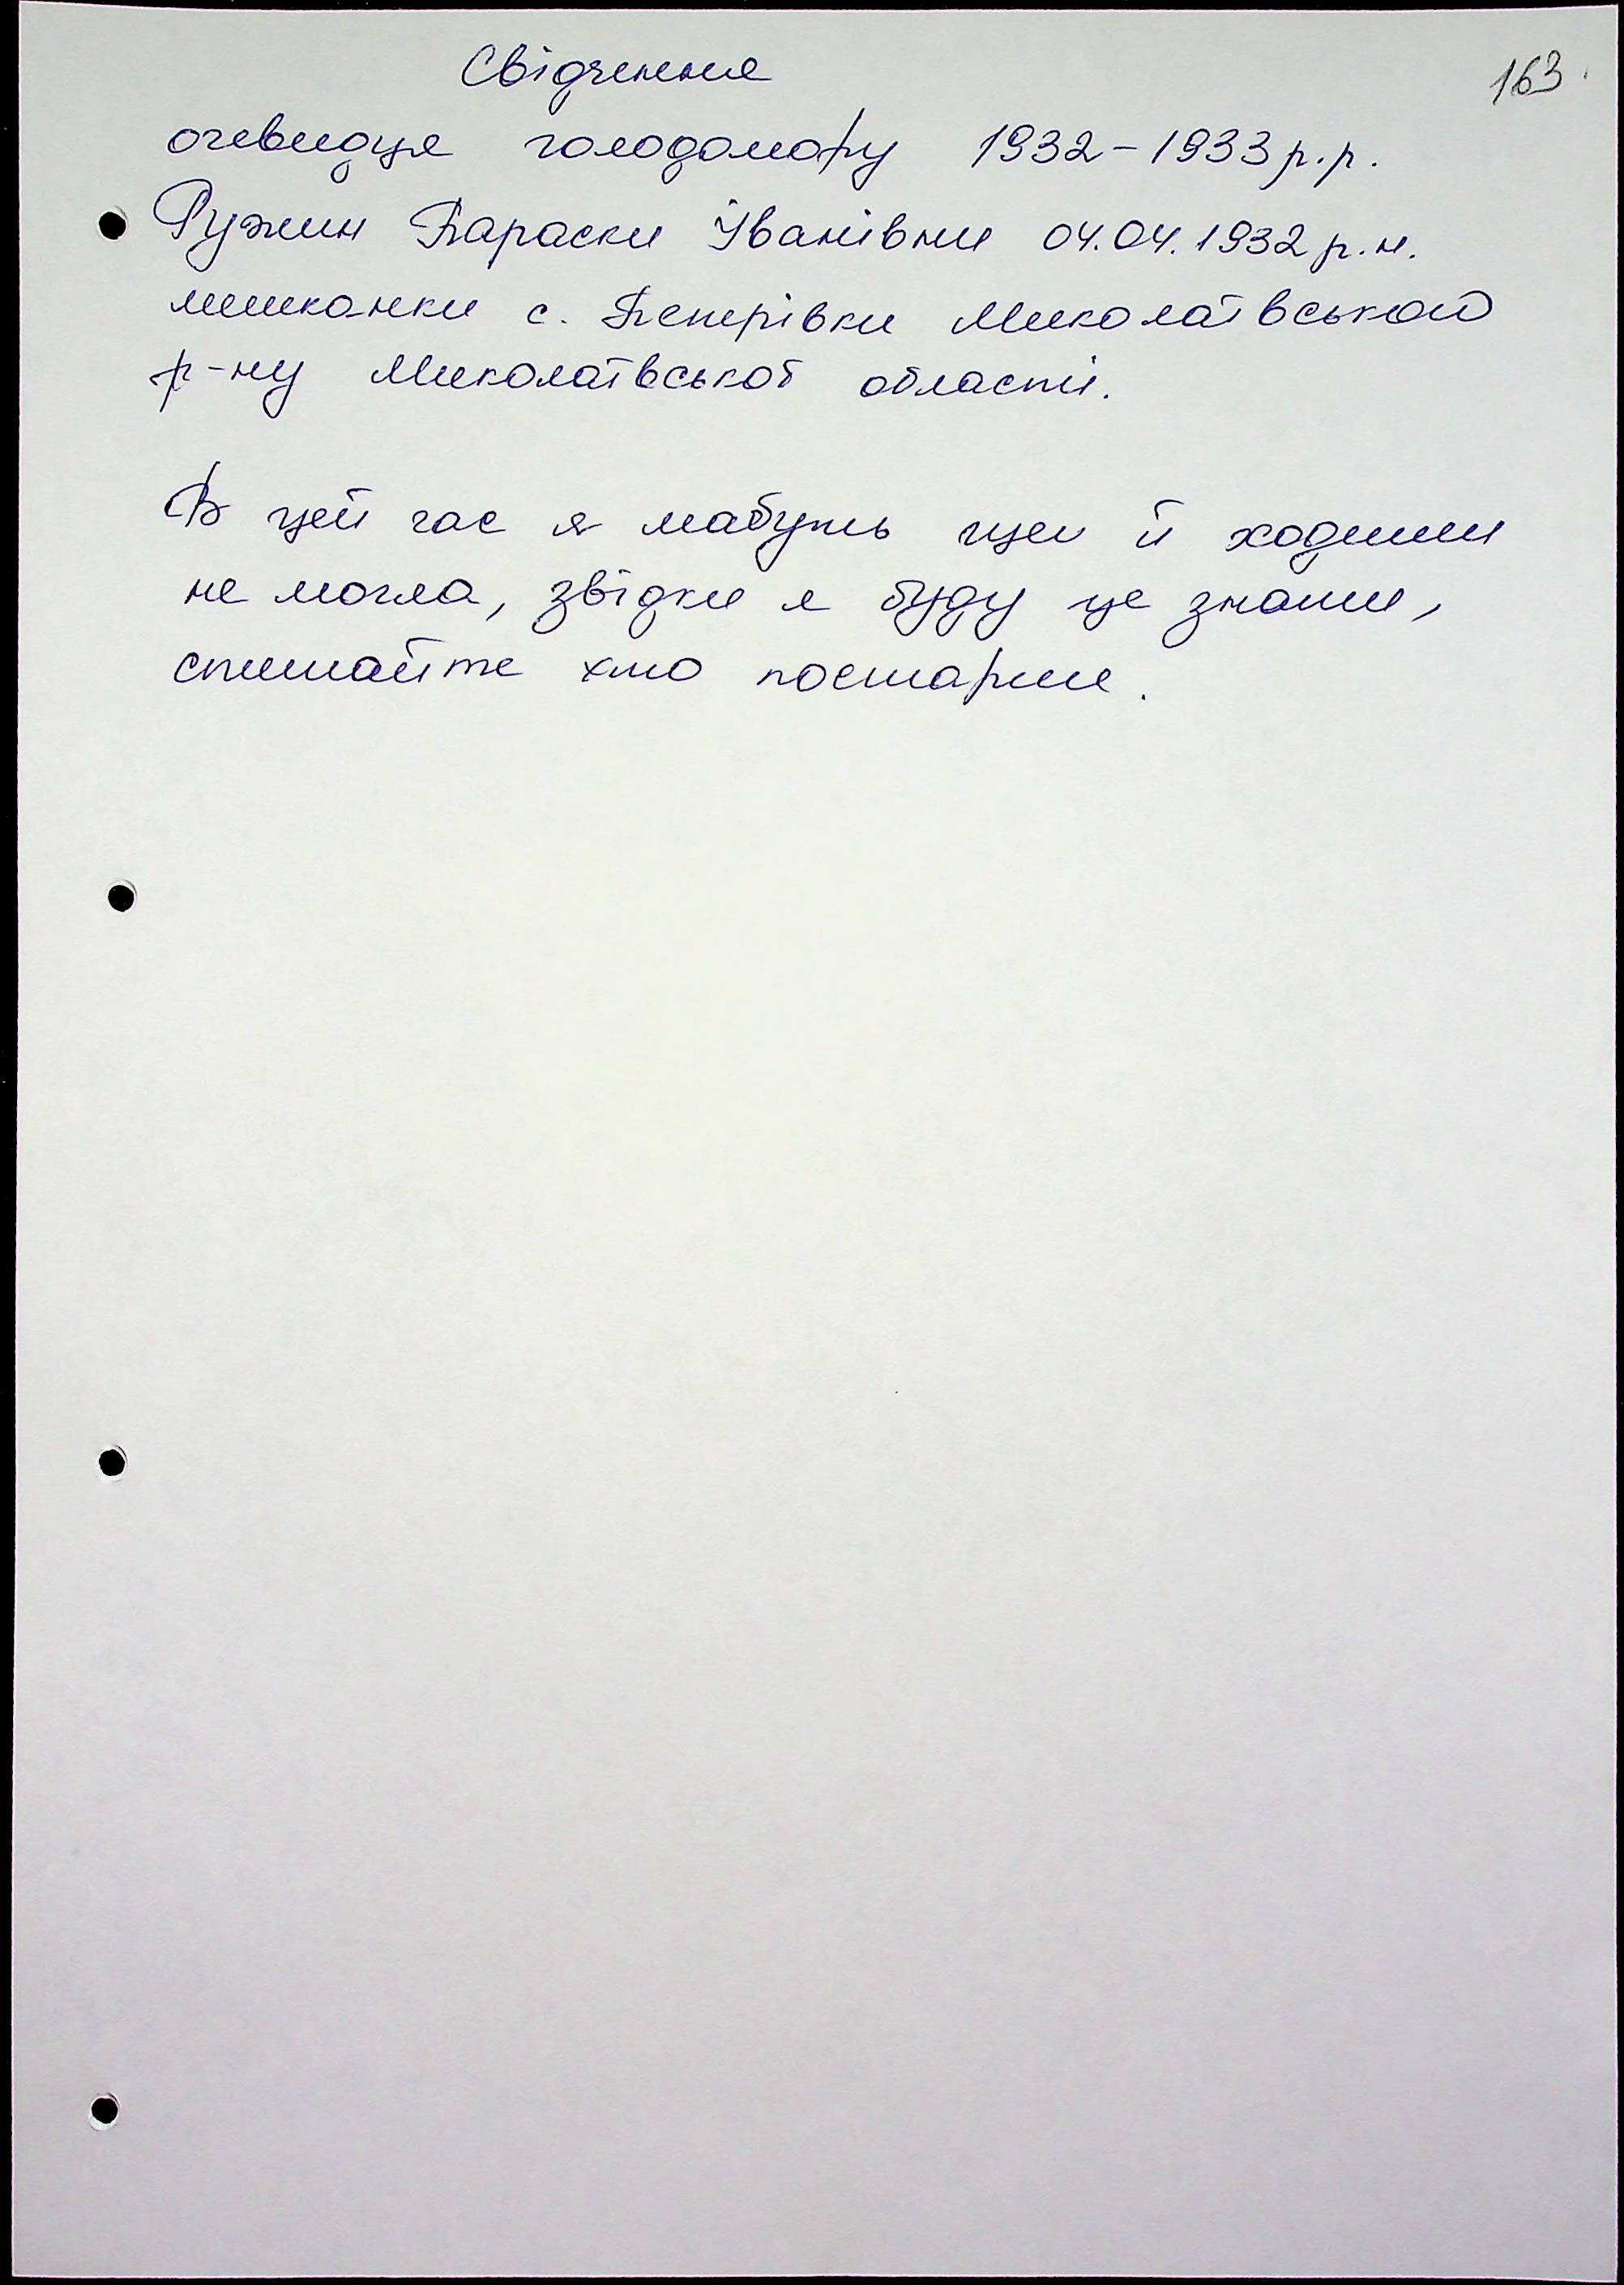 Свідчення
163
очевидця голодомору 1932-1933 р.р.
Ружин Параски Іванівни 04.04.1932 р.н.
мешканки с. Петрівки Миколаївського
р-ну Миколаївської області.
В цей час я мабуть ще й ходити
не могла, звідки я буду це знати,
спитайте хто постарше.